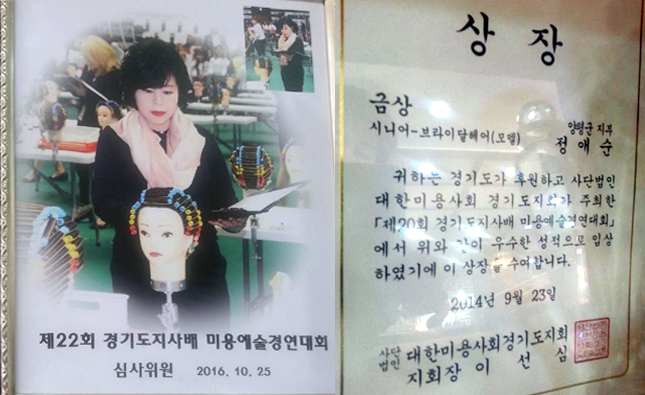 제22회 경기도지사배 미용예술경연대회
심사위원 2016. 10. 25
상 장
금상
시니어-브라이달헤어(모델) 양평군 지부
정애순
귀하는 경기도가 후원하고 사단법인
대한미용사회 경기도지회가 주최한
「제20회 경기도지사배 미용예술경연대회」
에서 위와 같이 우수한 성적으로 입상
하였기에 이 상장을 수여합니다.
2014년 9월 23일
사단법인 대한미용사회경기도지회
지회장 이 선 심